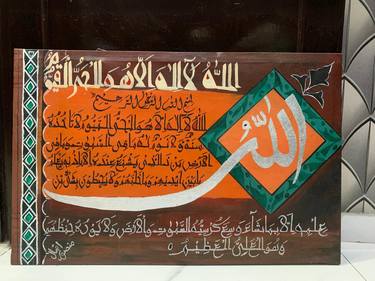 الله لا اله الا هو الحي القيوم
بسم الله الرحمن الرحيم
الله لا اله الا هو الحي القيوم لا تاخذه
سنة ولا نوم له ما في السموت وما في
الارض من ذا الذي يشفع عنده الا باذنه يعلم
ما بين ايديهم وما خلفهم ولا يحيطون بشيء من
الله
علمه الا بما شاء وسع كرسيه السموت والارض ولا يوده حفظهما
وهو العلي العظيم